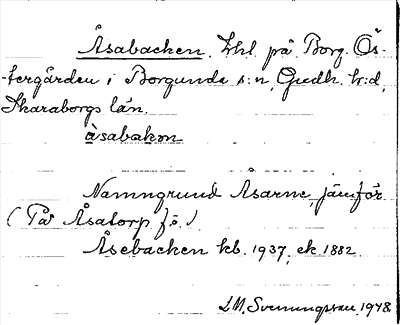 Åsabacken. Lhl på Borg. Ös-
tergården i Borgunda s:n, Gudh. h:d,
Skaraborgs län.
åsabakən
Namngrund Åsarne, jämför
( Åsatorp f.ö.)
Åsebacken kb. 1937, ek 1882.
S.M. Svenungsson 1948.